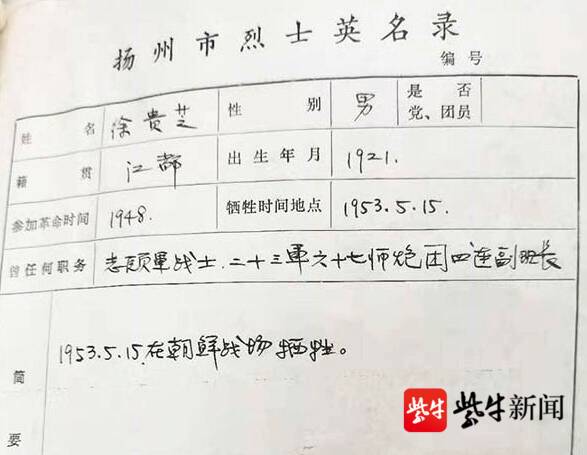 扬州市烈士英名录
编号
姓名 徐贵芝 性别 男 是否党、团员
籍贯 江都 出生年月 1921.
参加革命时间 1948. 牺牲时间地点 1953.5.15.
曾任何职务 志愿军战士.二十三军六十七师炮团四连副班长
1953.5.15.在朝鲜战场牺牲。
简要
紫牛 紫牛新闻